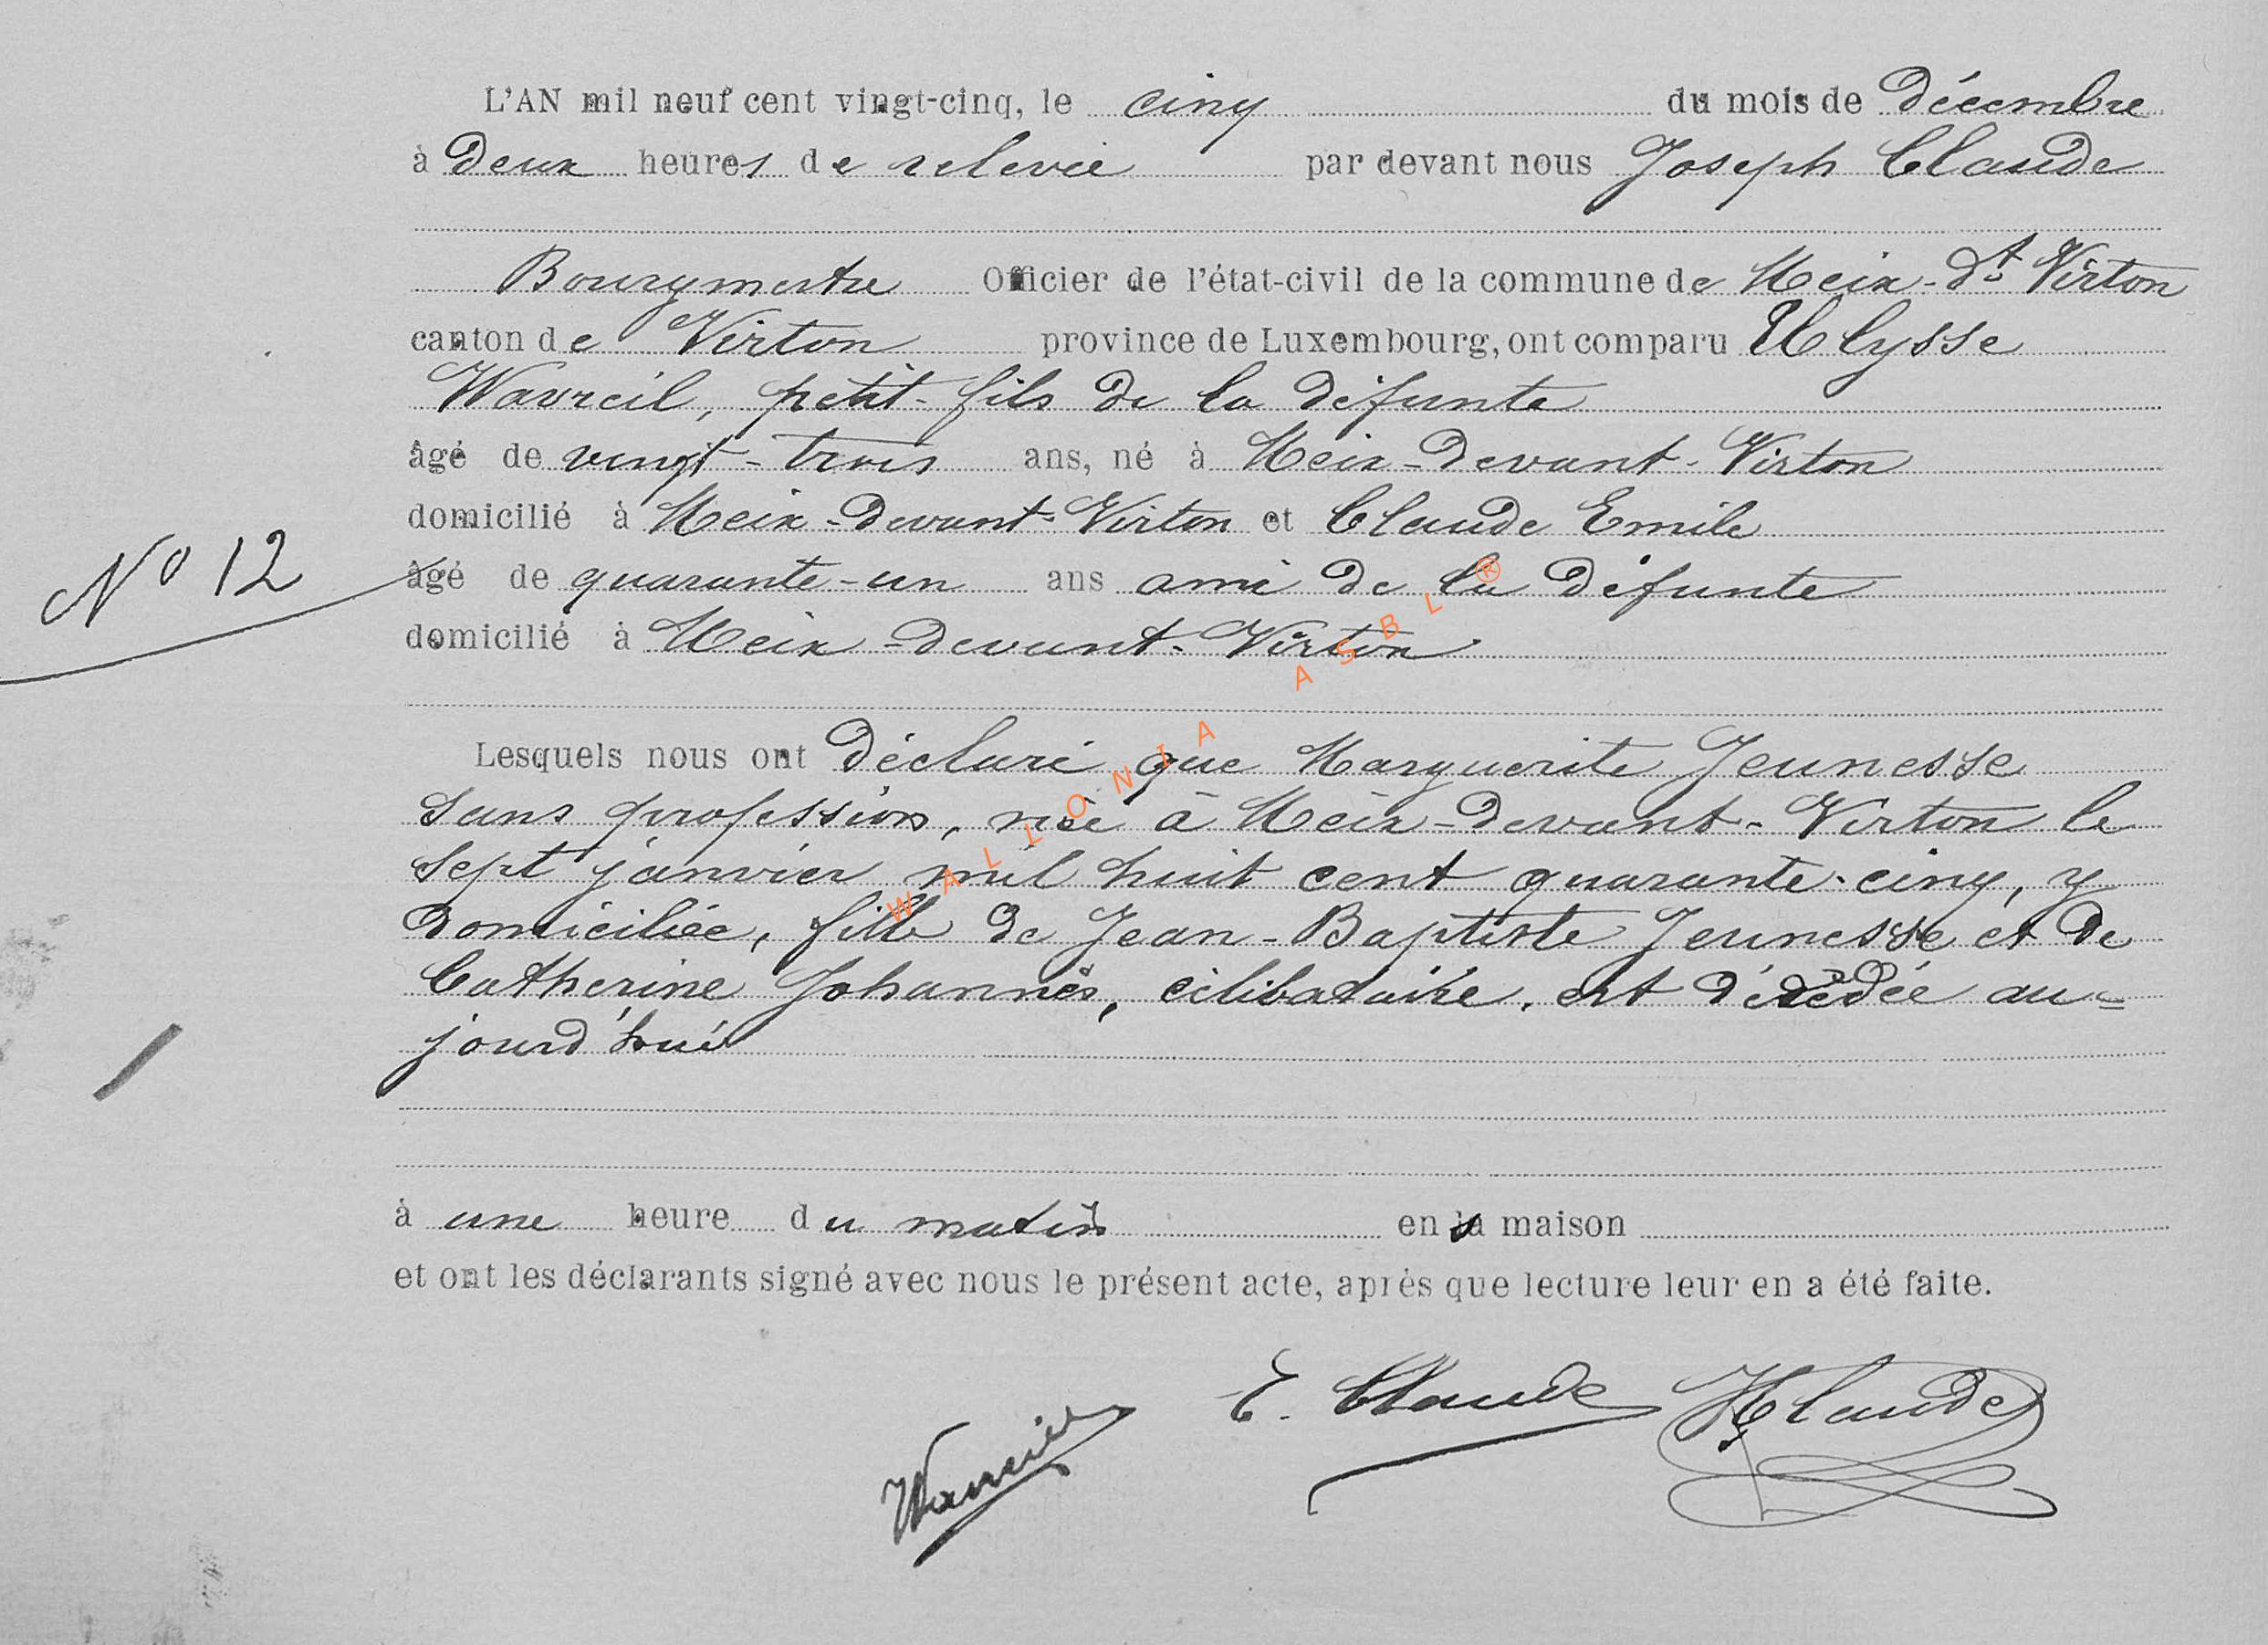 L'AN mil neuf cent vingt-cinq, le cinq du mois de Décembre
à Deux heures de relevée par devant nous Joseph Claude
Bourgmestre Officier de l'état-civil de la commune de Meix-dt Virton
canton de Virton province de Luxembourg, ont comparu Ulysse
Wavreil, petit-fils de la défunte
âgé de vingt-trois ans, né à Meix-Devant-Virton
domicilié à Meix-Devant-Virton et Claude Emile
N° 12 âgé de quarante-un ans ami de la défunte
domicilié à Meix-devant-Virton
Lesquels nous ont Déclaré que Marguerite Jeunesse
Sans profession, née à Meix-Devant-Virton le
Sept janvier mil huit cent quarante-cinq, y
Domiciliée, fille de Jean-Baptiste Jeunesse et de
Catherine Johannès, célibataire, est décédée au=
jourd'hui
à une heure du matin en sa maison
et ont les déclarants signé avec nous le présent acte, après que lecture leur en a été faite.
Wavreil E. Claude JClaude
WALLONIA ASBL ®